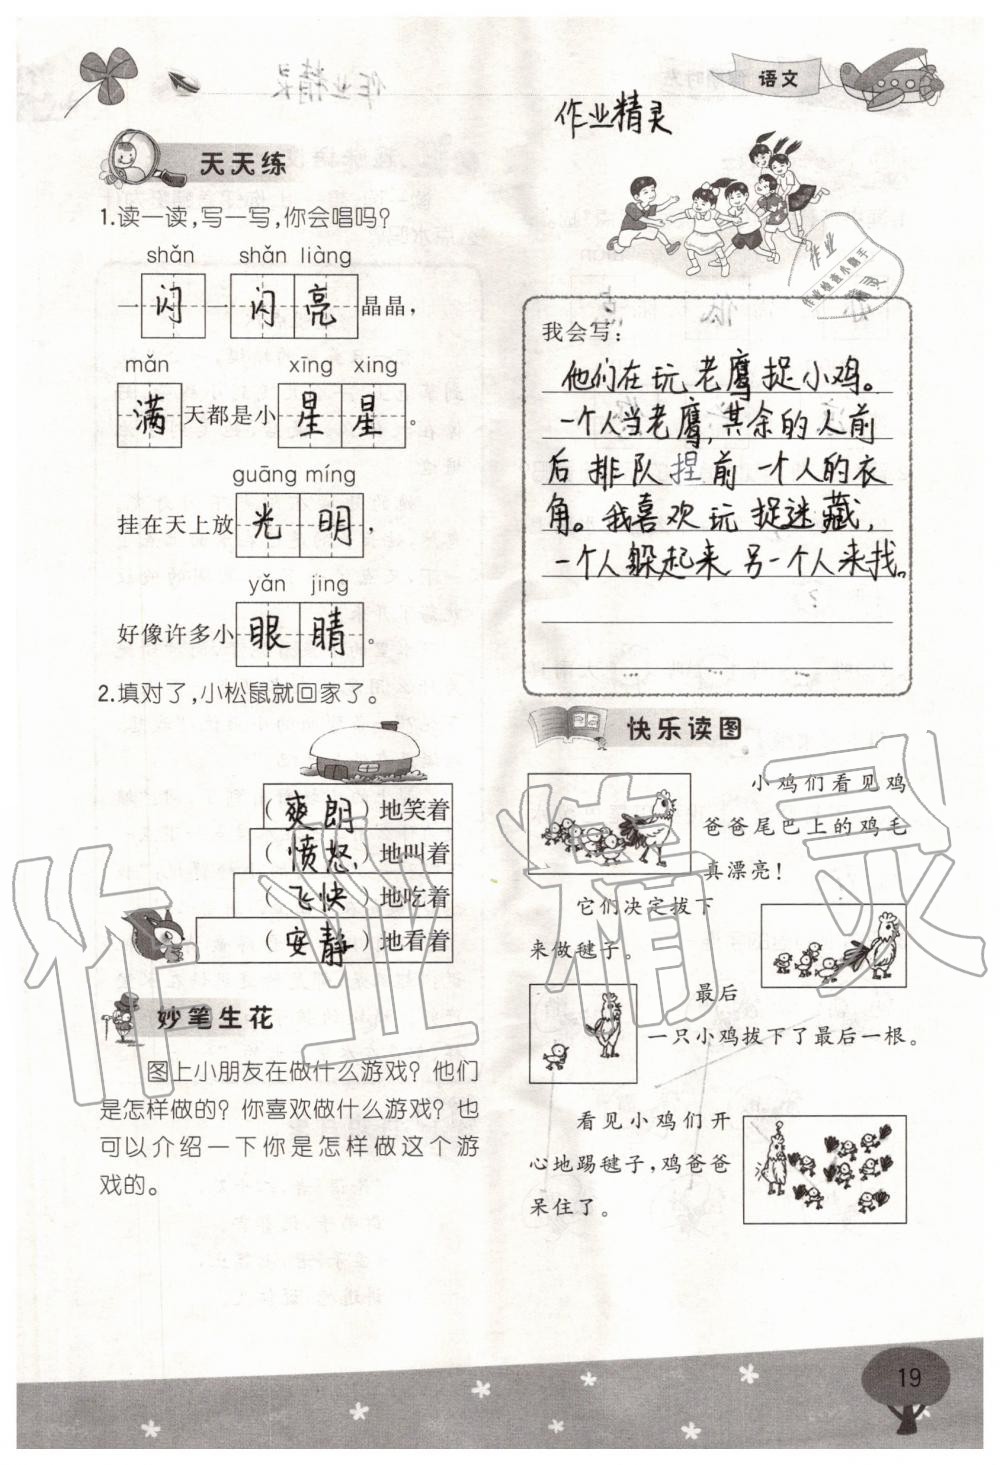 语文
作业精灵
天天练
1.读一读,写一写,你会唱吗?
shǎn shǎn liàng
一闪一闪亮晶晶,
mǎn xīng xing
满天都是小星星。
guāng míng
挂在天上放光明,
yǎn jing
好像许多小眼睛。
2.填对了,小松鼠就回家了。
(爽朗)地笑着
(愤怒)地叫着
(飞快)地吃着
(安静)地看着
妙笔生花
图上小朋友在做什么游戏?他们
是怎样做的?你喜欢做什么游戏?也
可以介绍一下你是怎样做这个游
戏的。
我会写:
他们在玩老鹰捉小鸡。
一个人当老鹰,其余的人前
后排队捏前一个人的衣
角。我喜欢玩捉迷藏,
一个人躲起来另一个人来找。
快乐读图
小鸡们看见鸡
爸爸尾巴上的鸡毛
真漂亮!
它们决定拔下
来做毽子。
最后
一只小鸡拔下了最后一根。
看见小鸡们开
心地踢毽子,鸡爸爸
呆住了。
19
作业精灵